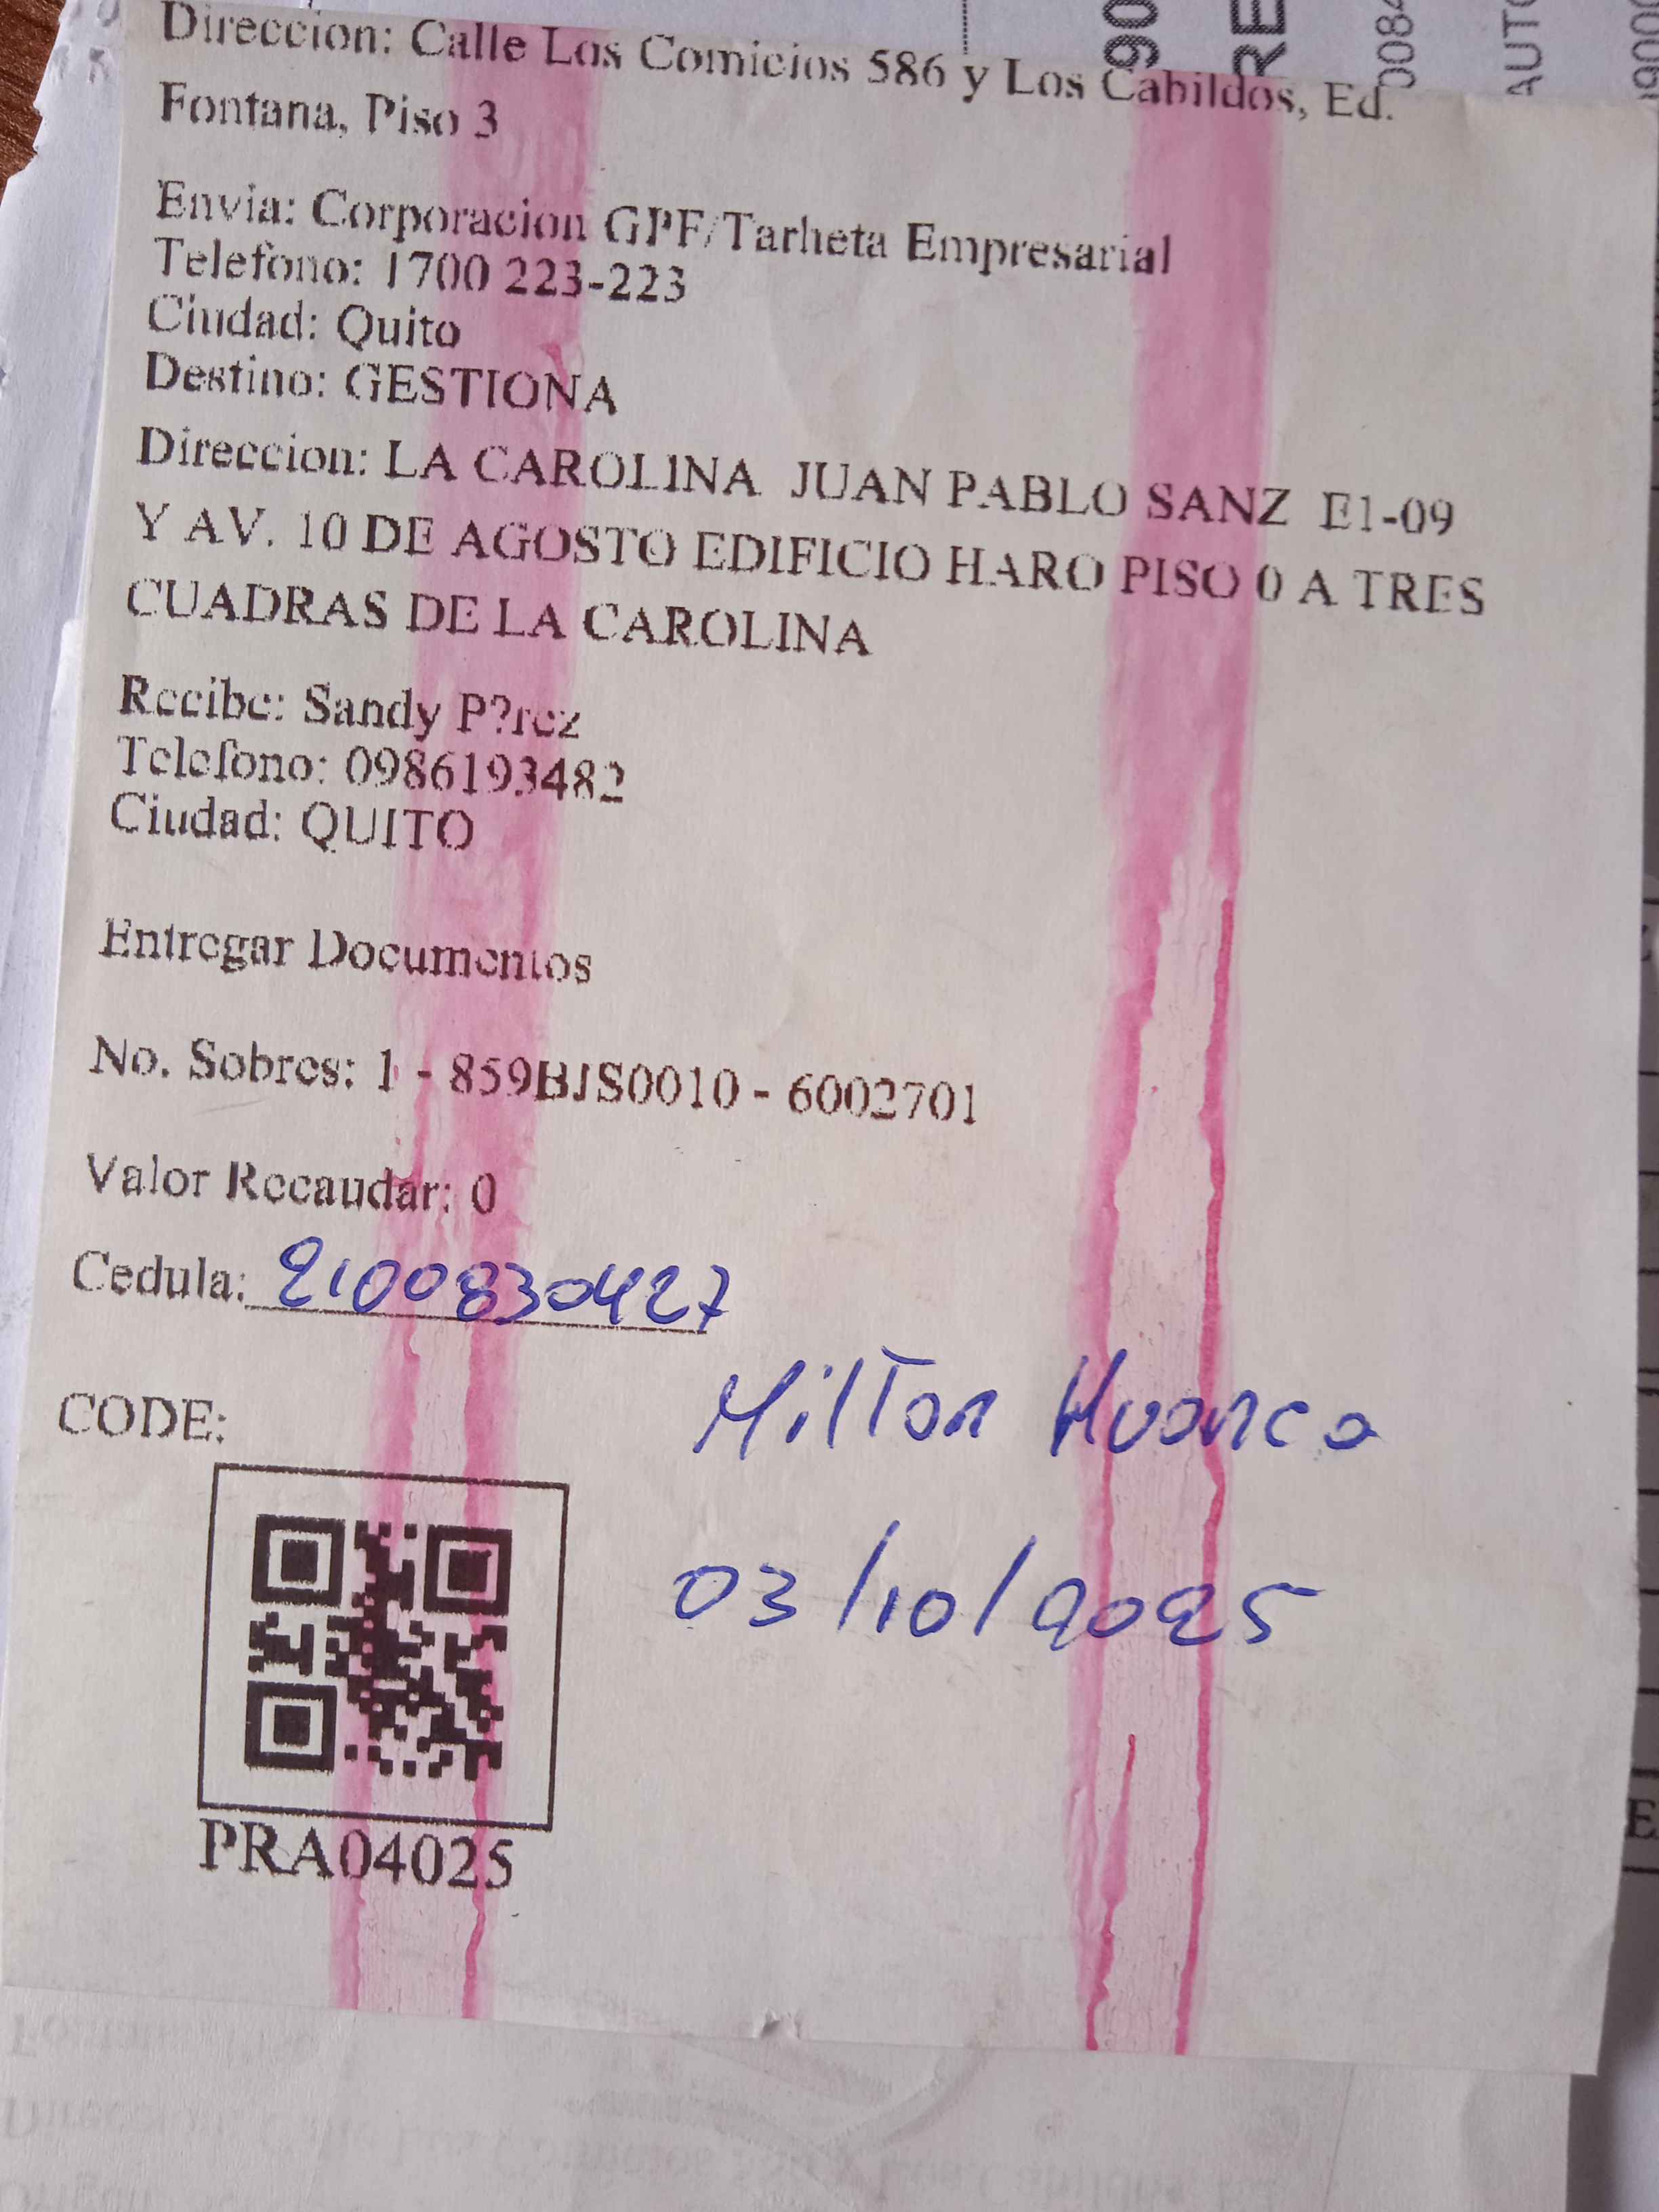 Direccion: Calle Los Comicios 586 y Los Cabildos, Ed.
Fontana, Piso 3
Envia: Corporacion GPF/Tarheta Empresarial
Telefono: 1700 223-223
Ciudad: Quito
Destino: GESTIONA
Direccion: LA CAROLINA JUAN PABLO SANZ E1-09
Y AV. 10 DE AGOSTO EDIFICIO HARO PISO 0 A TRES
CUADRAS DE LA CAROLINA
Recibe: Sandy P?rez
Telefono: 0986193482
Ciudad: QUITO
Entregar Documentos
No. Sobres: 1 - 859BJS0010 - 6002701
Valor Recaudar: 0
Cedula: 2100830427
Milton Huanca
03/10/2025
CODE:
PRA04025
90
RE
0084
AUTO